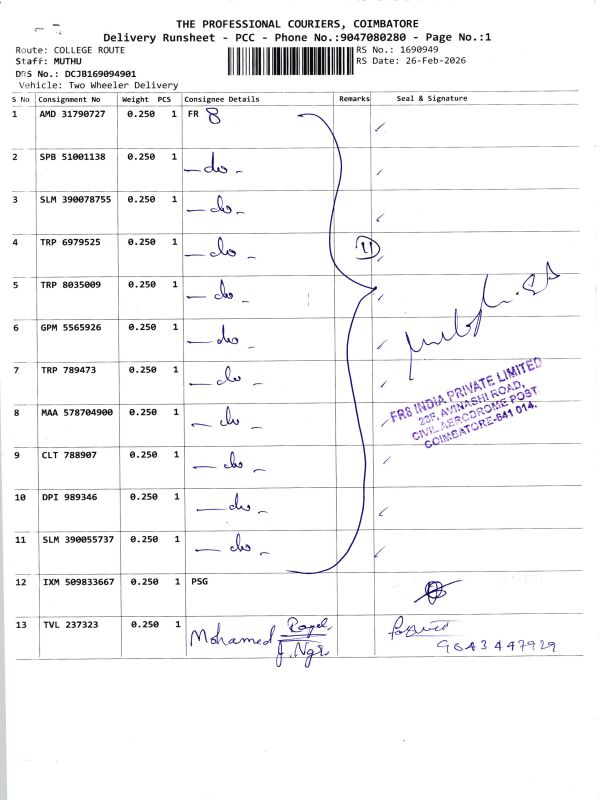 THE PROFESSIONAL COURIERS, COIMBATORE
Delivery Runsheet - PCC - Phone No.:9047080280 - Page No.:1
Route: COLLEGE ROUTE
RS No.: 1690949
Staff: MUTHU
RS Date: 26-Feb-2026
DRS No.: DCJB169094901
Vehicle: Two Wheeler Delivery
S No Consignment No Weight PCS Consignee Details Remarks Seal & Signature
1 AMD 31790727 0.250 1 FR 8
2 SPB 51001138 0.250 1 - do -
3 SLM 390078755 0.250 1 - do -
4 TRP 6979525 0.250 1 - do - 11
5 TRP 8035009 0.250 1 - do -
6 GPM 5565926 0.250 1 - do -
7 TRP 789473 0.250 1 - do -
FR8 INDIA PRIVATE LIMITED
AVINASHI ROAD,
CIVIL AERODROME POST
COIMBATORE-641 014.
8 MAA 578704900 0.250 1 - do -
9 CLT 788907 0.250 1 - do -
10 DPI 989346 0.250 1 - do -
11 SLM 390055737 0.250 1 - do -
12 IXM 509833667 0.250 1 PSG
13 TVL 237323 0.250 1 Mohamed
J. Ngr.
9643447929